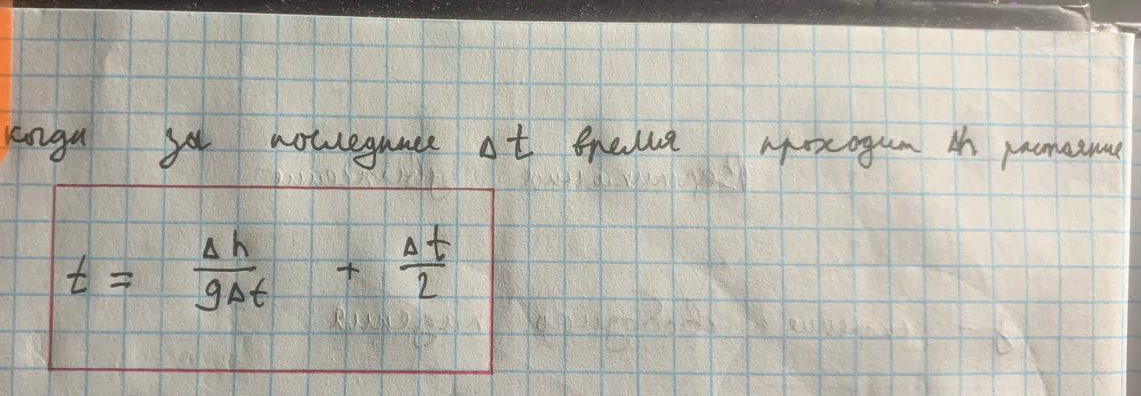 когда за последнее Δt время проходит Δh растояние
t = Δh/gΔt + Δt/2